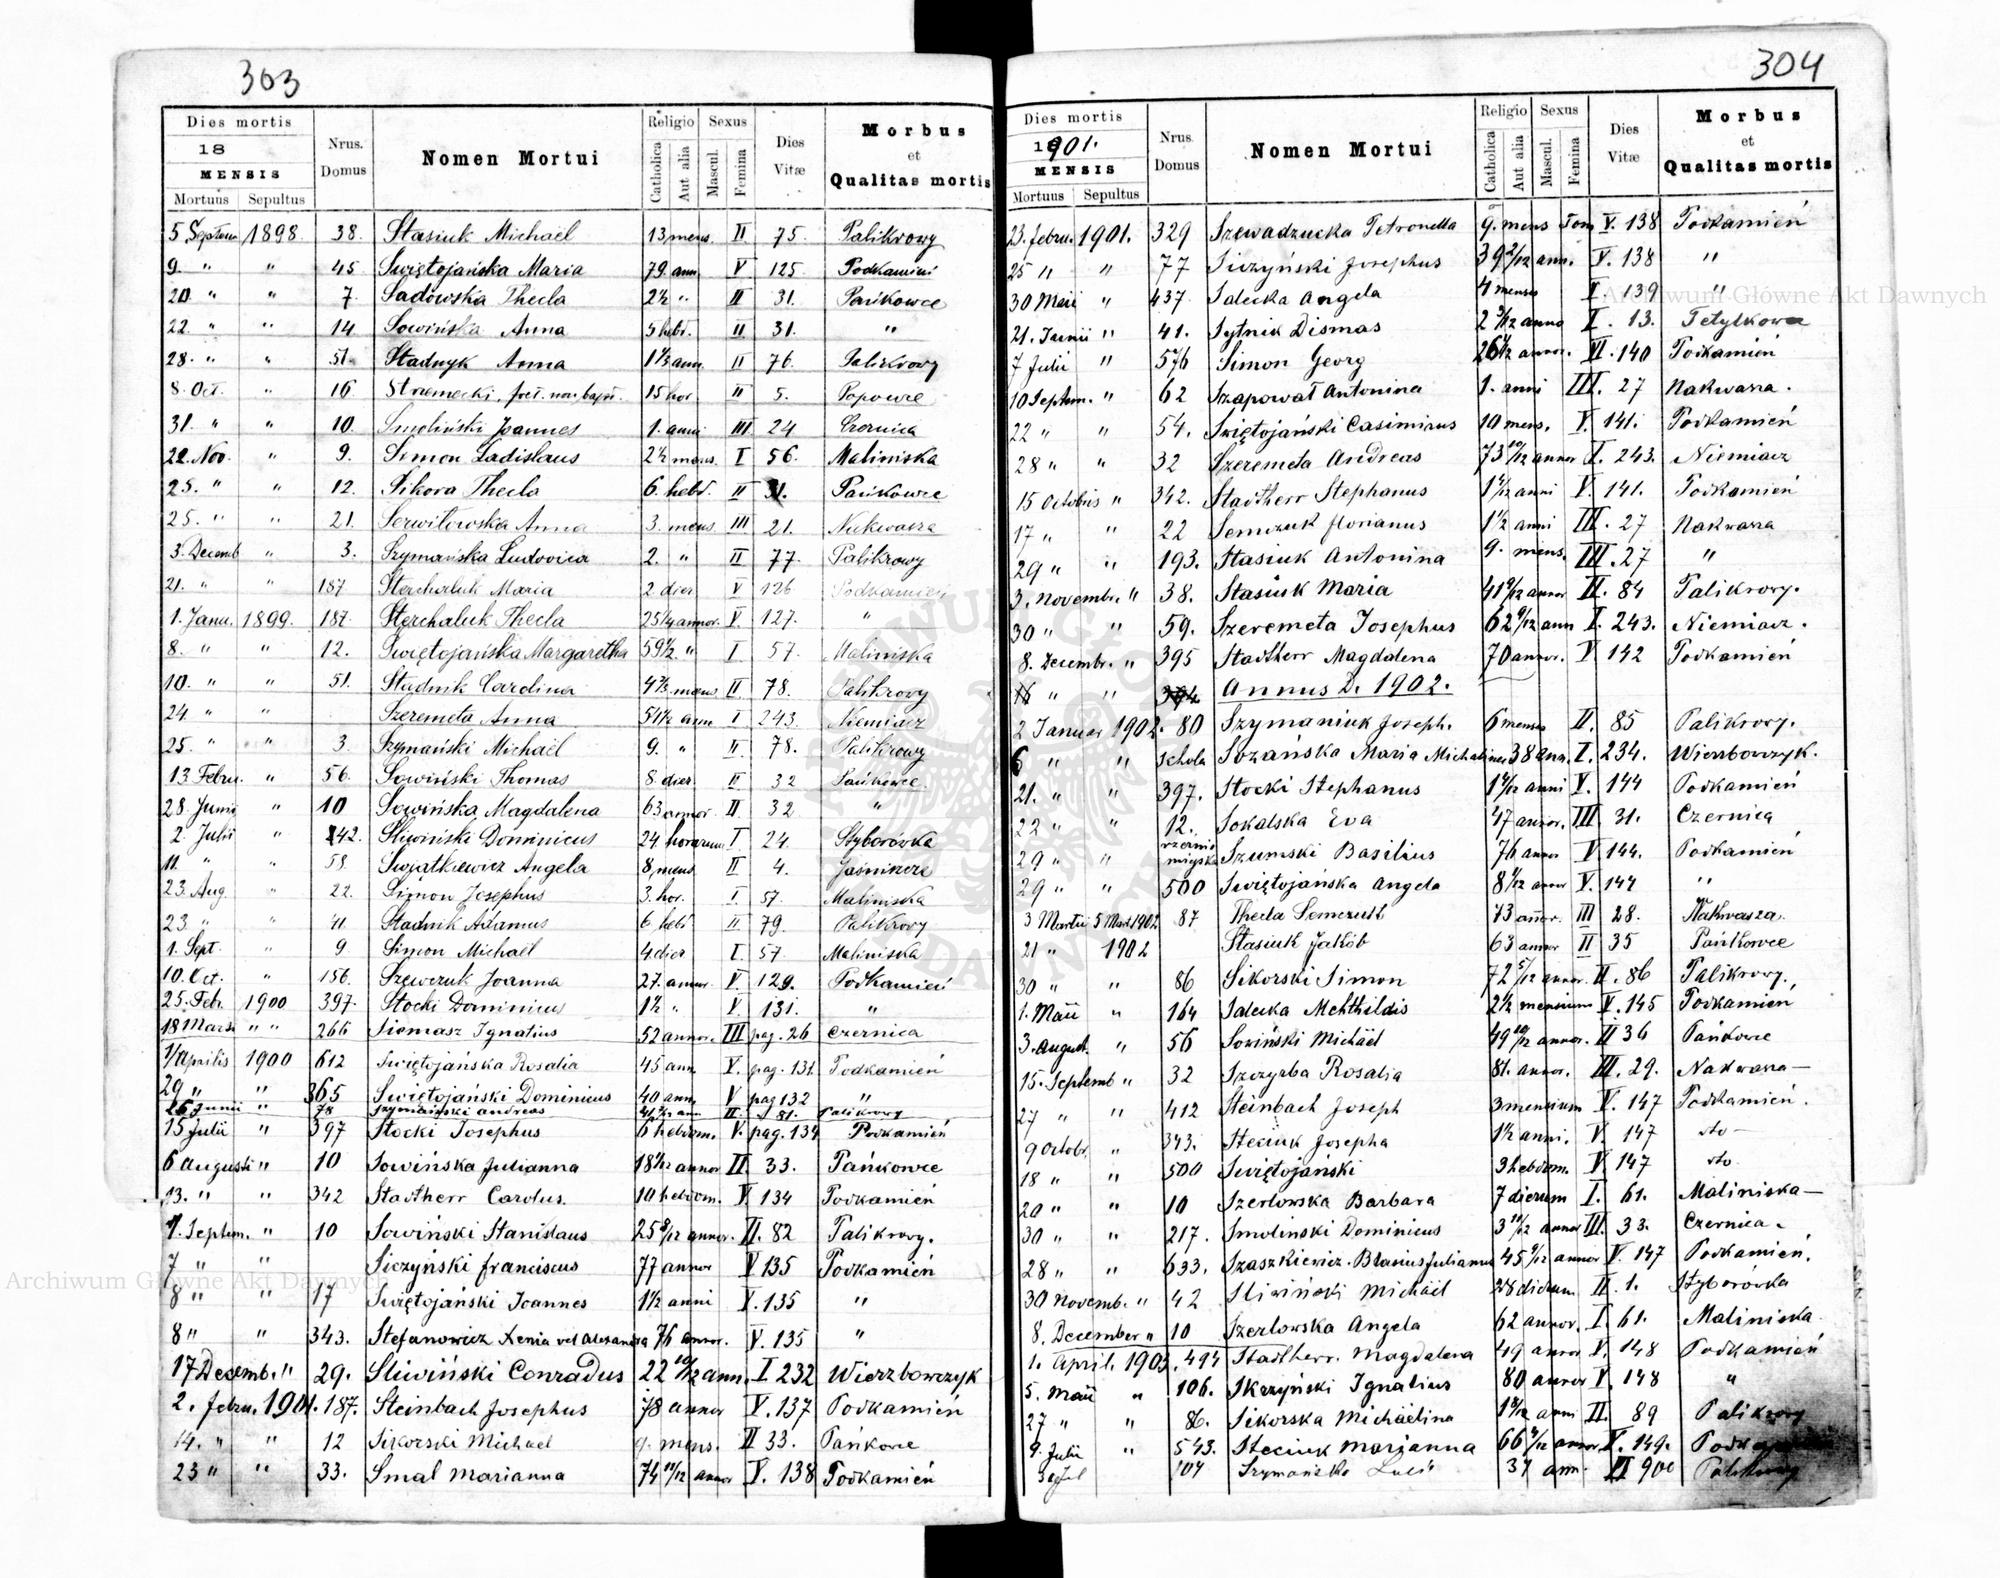 303
Dies mortis
18
MENSIS
Mortuus Sepultus
Nrus. Domus
Nomen Mortui
Religio
Catholica
Aut alia
Sexus
Mascul.
Femina
Dies Vitæ
Morbus
et
Qualitas mortis
5 Septem 1898. 38. Stasiuk Michael 13 mens. II 75. Palikrowy
9. " " 45. Świętojańska Maria 79. ann V 125. Podkamień
20 " " 7. Sadowska Thecla 2½ " II 31. Pańkowce
22. " " 14. Sowińska Anna 5 hebd. II 31. "
28. " " 51. Stadnyk Anna ann. II 76. Palikrowy
8. Oct. " 16. Stremecki, 15 hor II 5. Popowce
31. " " 10. Smoliński Joannes 1. anni III. 24 Czernica
22. Nov. " 9. Simon Ladislaus 2½ mens. I 56. Maliniska
25. " " 12. Sikora Thecla 6. hebd. II 31. Pańkowce
25. " " 21. Anna 3. mens III 21. Nakwasza
3. Decemb " 3. Szymańska Ludovica 2. " II 77. Palikrowy
21. " " 187 Maria 2 dier V 126 Podkamień
1. Janu. 1899. 187. Sterchaluk Thecla annor. V. 127. "
8. " " 12. Świętojańska Margaretha 59½ " I 57. Maliniska
10. " " 51. Stadnik Carolina mens II. 78. Palikrowy
24. " " Szeremeta Anna ann I 243. Niemiacz
25. " " 3. Szymański Michaël 9. " II. 78. Palikrowy
13. Febru. " 56. Sowiński Thomas 8. dier. II 32 Pańkowce.
28. Junii " 10 Sowińska Magdalena 63 annor. II 32. "
2. Julii " 242. Śliwiński Dominicus 24. horarum I. 24. Styborówka
11. " " 58. Świątkiewicz Angela 8, mens II 4.
23. Aug. " 22. Simon Josephus 3. hor. I. 57. Maliniska
23. " " 41. Stadnik Adamus 6 hebd II 79. Palikrowy
1. Sept. " 9. Simon Michaël 4 dier I. 57. Maliniska
10. Oct. " 156. Szewczuk Joanna 27. annor. V. 129. Podkamień
25. Febr. 1900 397. Stocki Dominicus 1½ " V. 131. "
18 Mars. " " 266 Siomasz Ignatius 52 annor. III pag. 26 Czernica
Aprilis 1900 612 Świętojańska Rosalia 45 ann V. pag. 131. Podkamień
29 " " 365 Świętojański Dominicus 40 ann V pag 132 "
26 Junii " 78 Szymański Andreas ann II. 81. Palikrowy
15 Julii " 397 Stocki Josephus 6 hebdom. V. pag. 134 Podkamień
6 Augusti " 10 Sowińska Julianna annor II 33. Pańkowce
13. " " 342 Stadtherr Carolus. 10 hebdom. V 134 Podkamień
1. Septem. " 10 Sowiński Stanislaus 25 8/12 annor. II. 82 Palikrowy.
7 " " Siczyński Franciscus 77 annor V 135 Podkamień
8 " " 17 Świętojański Joannes 1½ anni V. 135 "
8 " " 343. Stefanowicz Xenia vel Alexandra 76 annor. V. 135 "
17 Decemb. " 29. Śliwiński Conradus 22 10/12 ann. I 232 Wierzbowczyk
2. Febru. 1901. 187. Steinbach Josephus 78 annor V. 137 Podkamień
14. " " 12 Sikorski Michael 9. mens. II 33. Pańkowce
23 " " 33. Smal Marianna 74 11/12 annor V. 138 Podkamień
304
Dies mortis
1901.
MENSIS
Mortuus Sepultus
Nrus. Domus
Nomen Mortui
Religio
Catholica
Aut alia
Sexus
Mascul.
Femina
Dies Vitæ
Morbus
et
Qualitas mortis
23. Febru. 1901. 329 Szewadzucka Petronella 9. mens Tom V. 138 Podkamień
25 " " 77 Siczyński Josephus 39 2/12 ann. V. 138 "
30 Maii " 437. Salecka Angela 4 menses V 139 "
21. Junii " 41. Sytnik Dismas 2 3/12 anno I. 13. Tetylkowce
7 Julii " 576 Simon Georg annor. VI. 140 Podkamień
10 Septem. " 62 Szapował Antonina 1. anni III. 27 Nakwasza.
22 " " 54. Świętojański Casimirus 10 mens. V. 141. Podkamień
28 " " 32 Szeremeta Andreas 73 10/12 annor I. 243. Niemiacz
15 Octobris " 342. Stadtherr Stephanus anni V. 141. Podkamień
17 " " 22 Semczuk Florianus 1½ anni III. 27 Nakwasza
29 " " 193. Stasiuk Antonina 9. mens. III. 27 "
3. Novembr. " 38. Stasiuk Maria 41 9/12 annor II. 84 Palikrowy.
30 " " 59. Szeremeta Josephus 62 9/12 ann I. 243. Niemiacz.
8. Decembr. " 395 Stadtherr Magdalena 70 annor. V 142 Podkamień
" " Annus D. 1902.
2 Januar 1902. 80 Szymaniuk Joseph. 6 menses II. 85 Palikrowy.
6 " " Schola Sozańska Maria Michalina 38 ann. I. 234. Wierzbowczyk.
21. " " 397. Stocki Stephanus anni V. 144 Podkamień
22 " " 12. Sokalska Eva 47 annor. III 31. Czernica
29 " " Szumski Basilius 76 annor V 144. Podkamień
29 " " 500 Świętojańska Angela annor V. 144 "
3 Martii 5 Mart 1902 87 Thecla Semczuk 73 annor. III 28. Nakwasza.
21 " 1902 Stasiuk Jakób 63 annor II 35 Pańkowce
30 " " 86 Sikorski Simon 72 5/12 annor. II. 86 Palikrowy.
1. Maii " 164 Salecka Mechthildis 2½ mensium V. 145 Podkamień
3. August. " 56 Sowiński Michäel 49 10/12 annor. II 36 Pańkowce
15. Septemb " 32 Szczyrba Rosalia 81. annor. III. 29. Nakwasza —
27 " " 412 Steinbach Joseph 3 mensium V. 147 Podkamień.
9 Octobr. " 343. Steciuk Josepha 1½ anni. V. 147 dto —
18 " " 500 Świętojański 3 hebdom. V 147 dto.
20 " " 10 Szerlowska Barbara 7 dierum I. 61. Maliniska —
30 " " 217. Smoliński Dominicus 3 10/12 annor III. 33. Czernica.
28 " " 633. Szaszkiewicz Blasius Julianus 45 9/12 annor V. 147 Podkamień.
30 Novemb. " 42 Śliwiński Michäel 28 dierum II. 1. Styborówka
8. December " 10 Szerlowska Angela 62 annor. I 61. Maliniska
1. April. 1903. 494 Stadtherr. Magdalena 49 annor V. 148 Podkamień
5. Maii " 106. Skrzyński Ignatius 80 annor V. 148 "
27 " " 86. Sikorska Michäelina anni II. 89 Palikrowy
9. Julii " 543. Steciuk Marianna annor V. 149. Podkamień
Jul 104 Szymańska 37 ann. II 900 Palikrowy
Archiwum Główne Akt Dawnych
Archiwum Główne Akt Dawnych